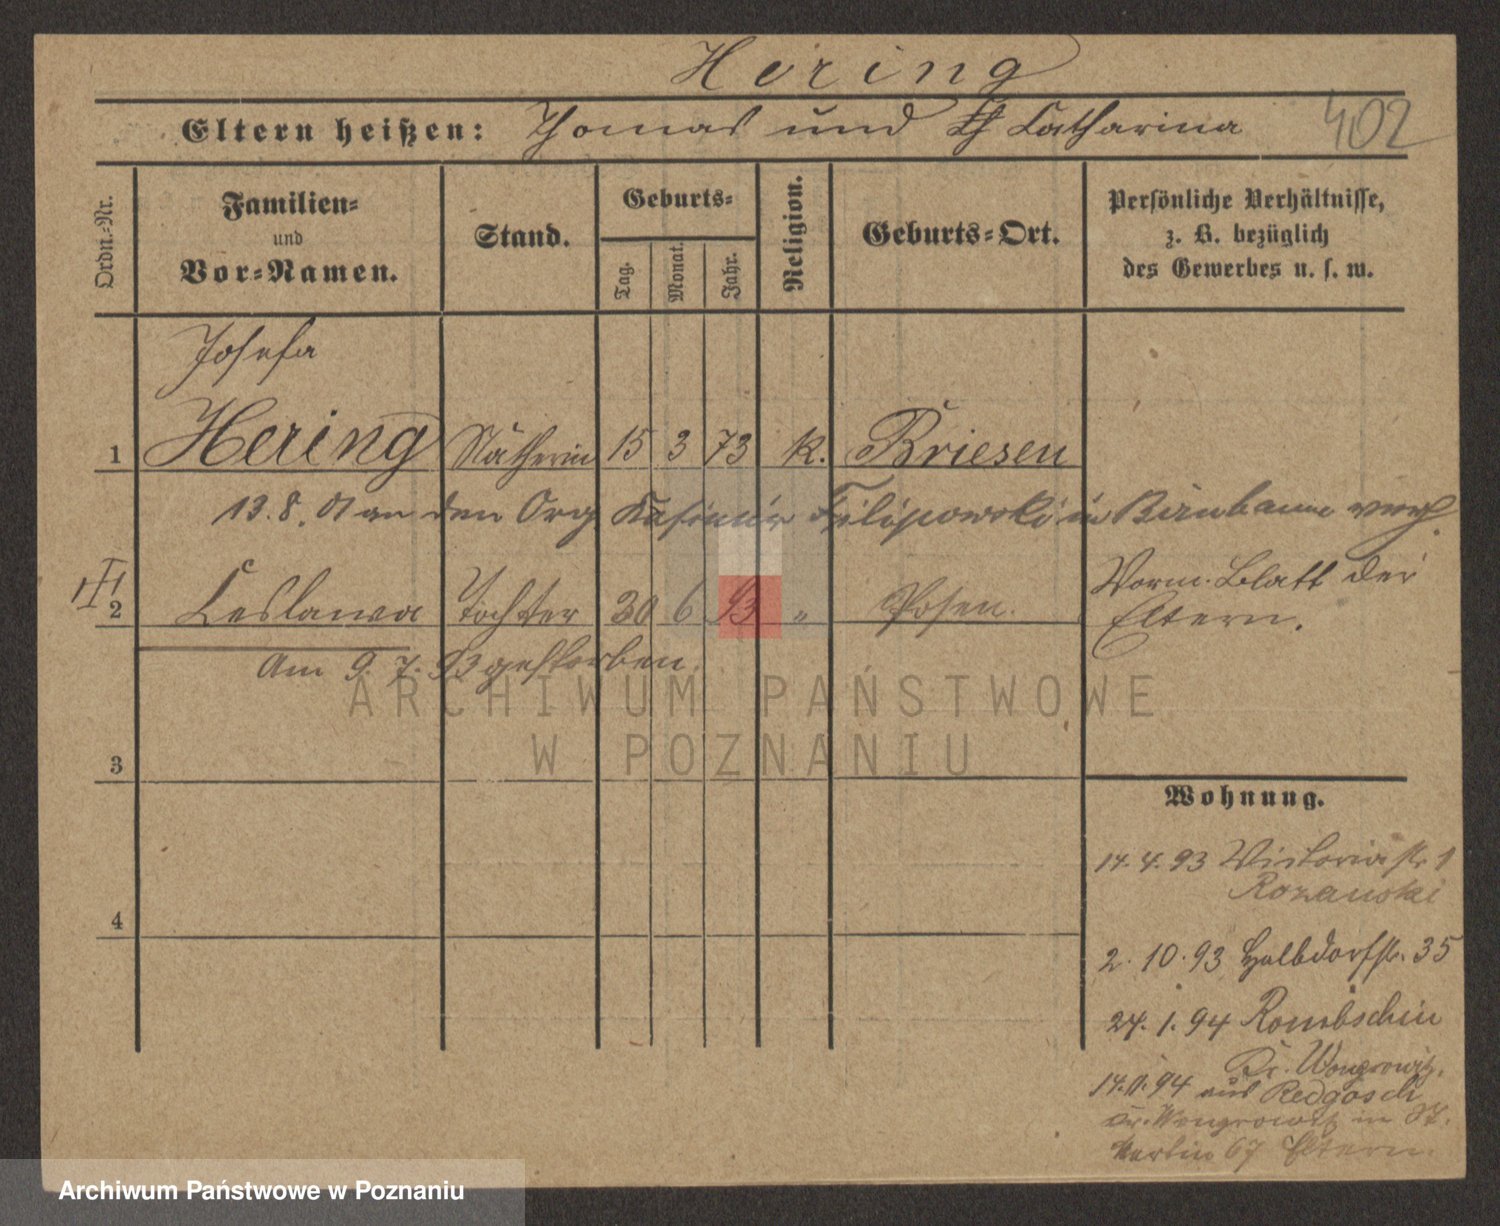 Hering
Eltern heißen: Thomas und Catharina 402
Ordn.-Nr.
Familien-
und
Vor-Namen.
Stand.
Geburts-
Tag.
Monat.
Jahr.
Religion.
Geburts-Ort.
Persönliche Verhältnisse,
z. B. bezüglich
des Gewerbes u. s. w.
Josefa
1 Hering Nätherin 15 3 73 k. Briesen
13.8.01 an den Org Kasimir Filipowski in Birnbaum verh.
2 Leslawa Tochter 30 6 93 " Posen.
Vorm. Blatt der
Eltern.
Am 9. 7. 93 gestorben.
ARCHIWUM PAŃSTWOWE
W POZNANIU
3
4
Wohnung.
17.4.93 Victoriastr 1
Rozanski
2.10.93 Halbdorfstr. 35
27.1.94 Rombschin
Kr. Wongrowitz.
94 aus Redgosch
Kr. Wongrowitz in St.
Martin 67 Eltern.
Archiwum Państwowe w Poznaniu